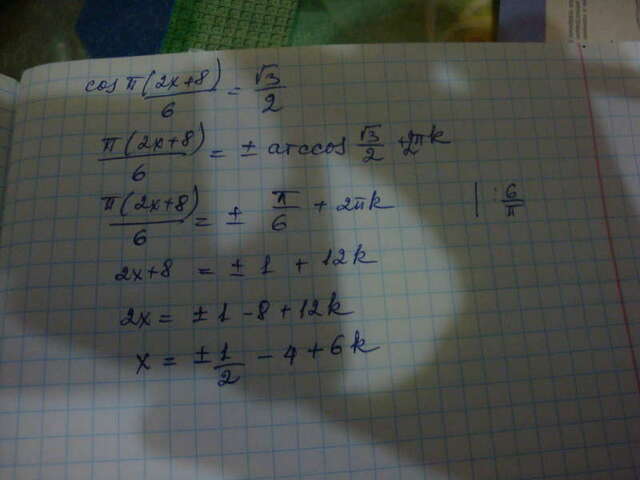 cos π(2x+8)/6 = √3/2
π(2x+8)/6 = ± arccos √3/2 + 2πk
π(2x+8)/6 = ± π/6 + 2πk | : 6/π
2x+8 = ± 1 + 12k
2x = ± 1 - 8 + 12k
x = ± 1/2 - 4 + 6k